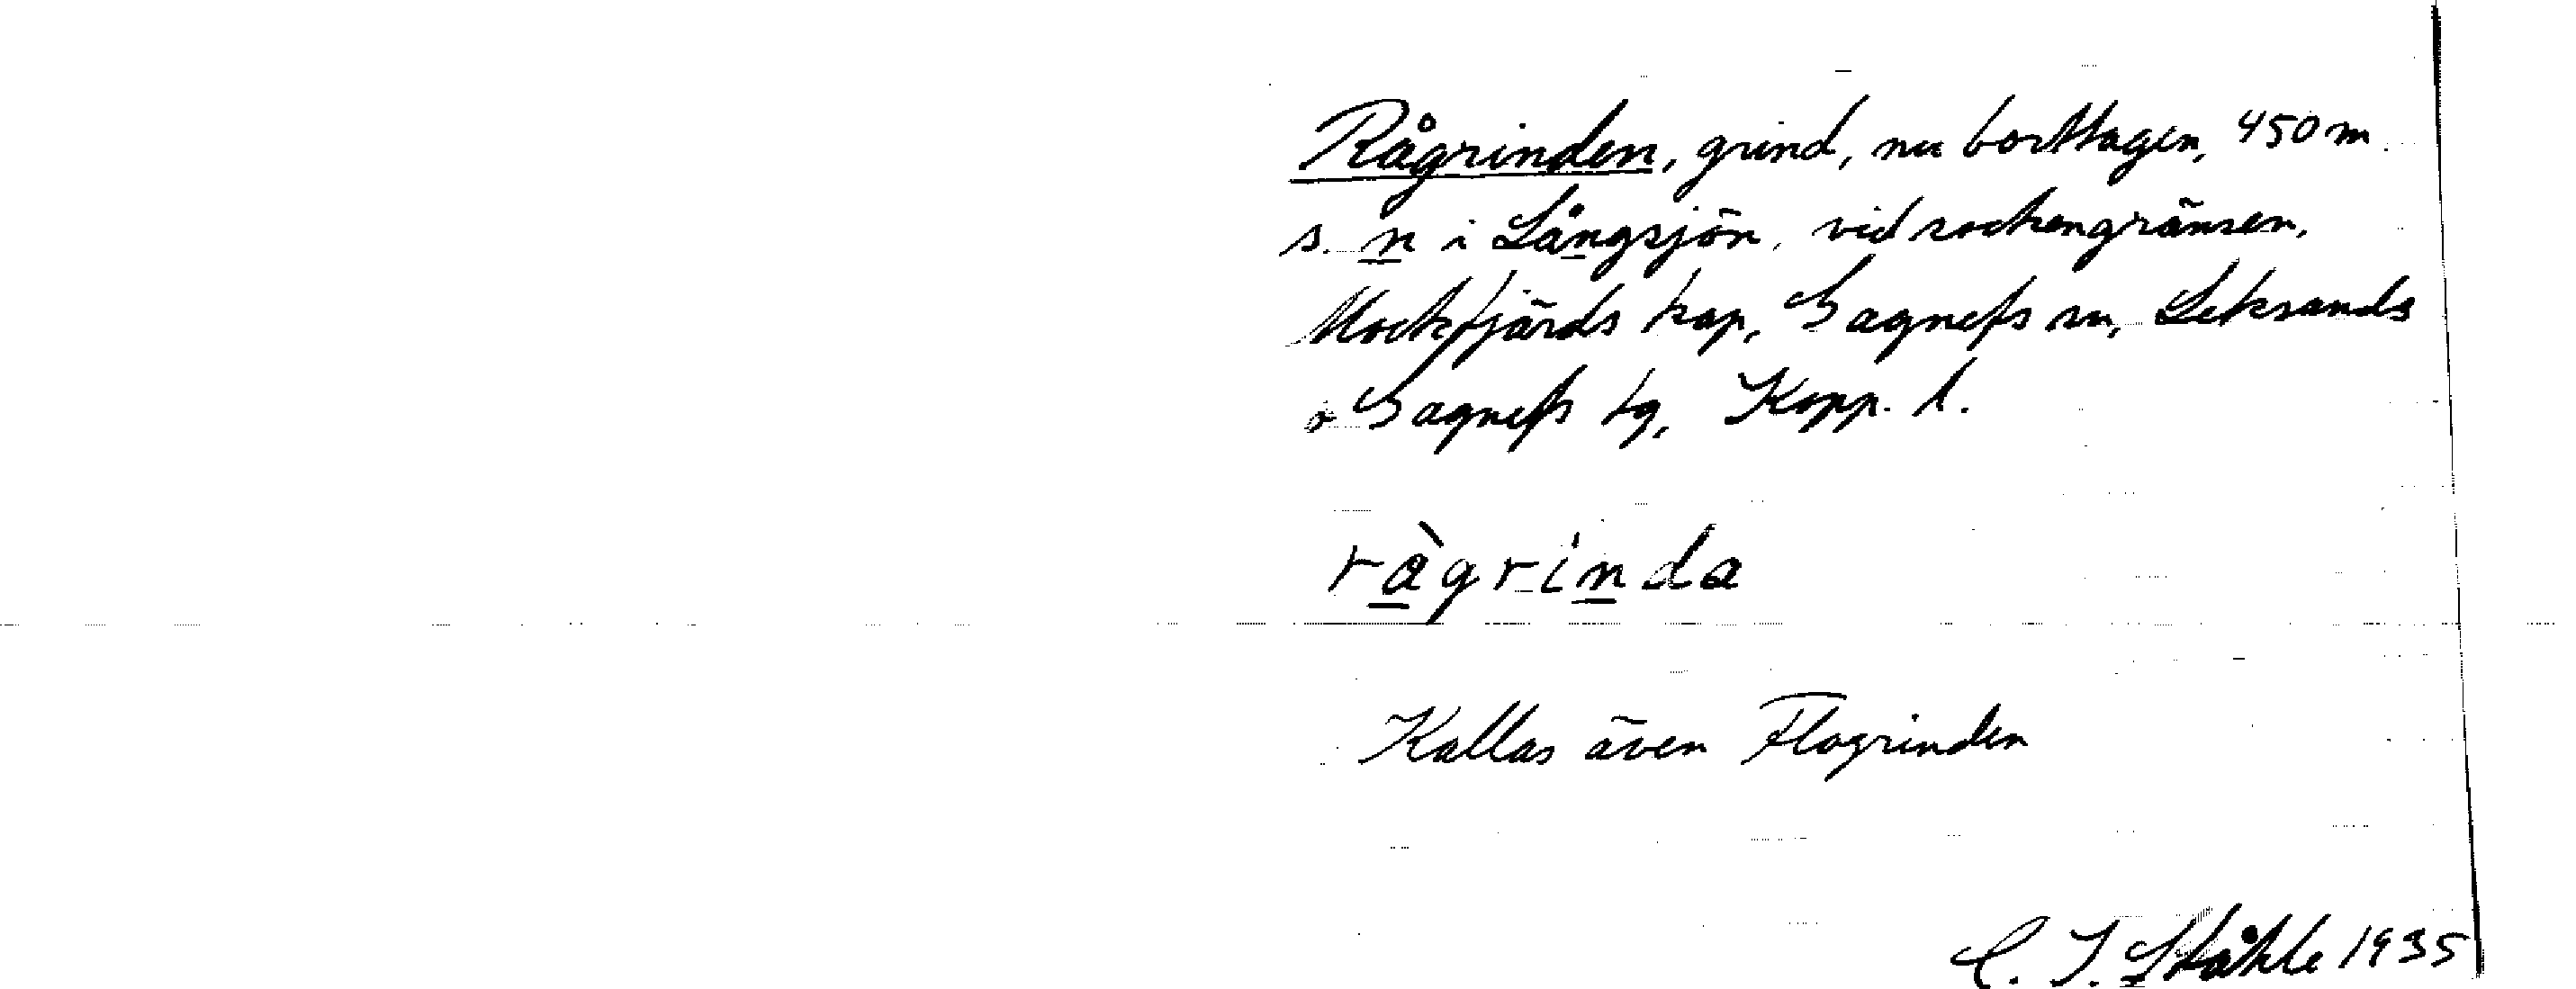 Rågrinden, grind, nu borttagen, 450 m.
s. n i Långsjön, vid sockengränsen,
Mockfjärds kap, Gagnefs sn, Leksands
o Gagnefs tg, Kopp. l.
ràgrinda
Kallas även Flogrinden
C. I. Ståhle 1935